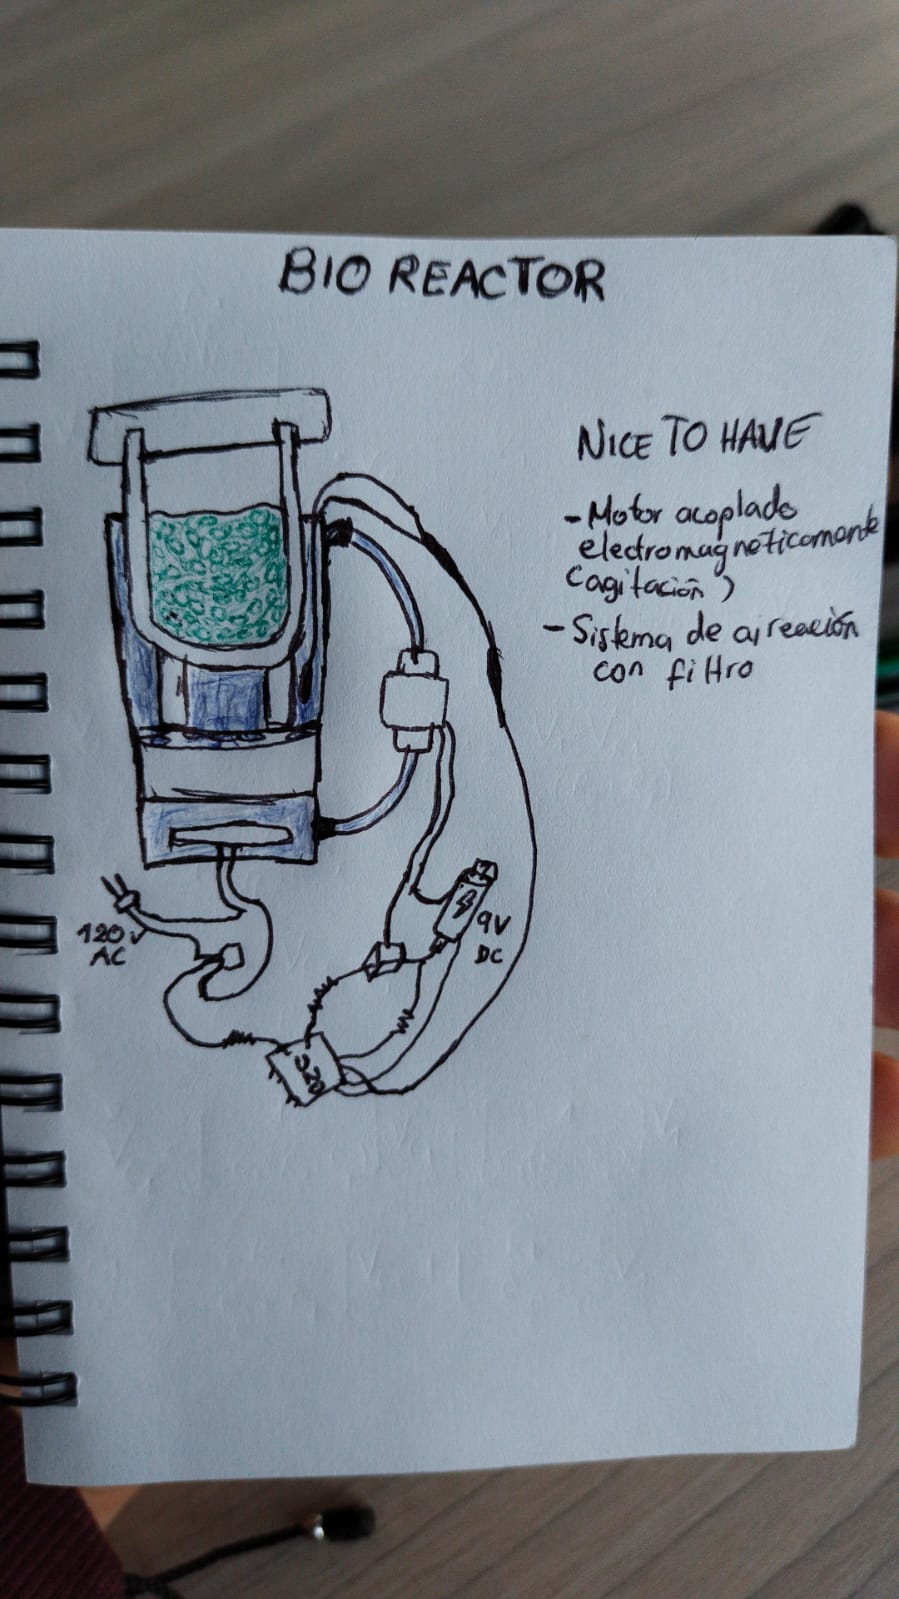 BIO REACTOR
NICE TO HAVE
- Motor acoplado
electromagneticamente
(agitación)
- Sistema de aireación
con filtro
120v
AC
9V
DC